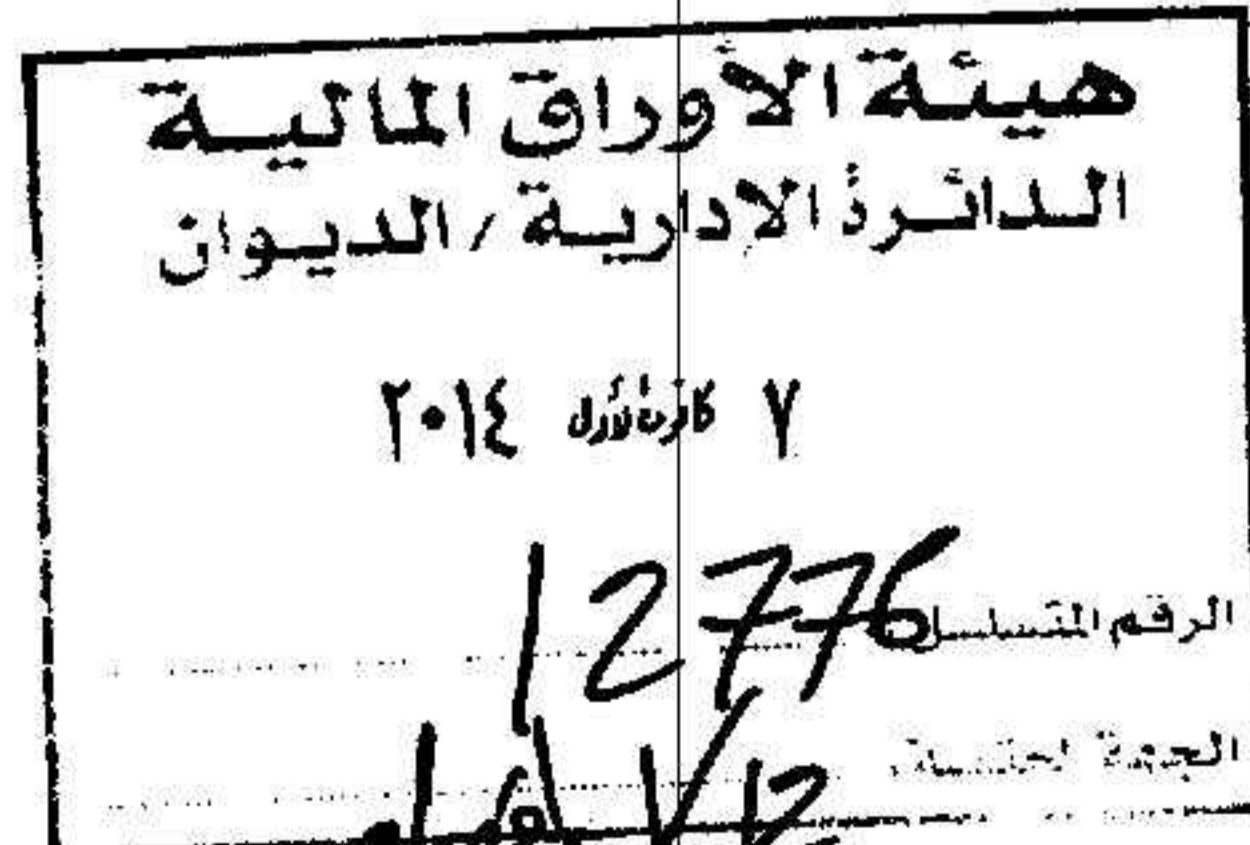 هيئة الأوراق المالية
الدائرة الادارية / الديوان
٧ كانون الأول ٢٠١٤
الرقم المتسلسل 12776
الجهة المختصة